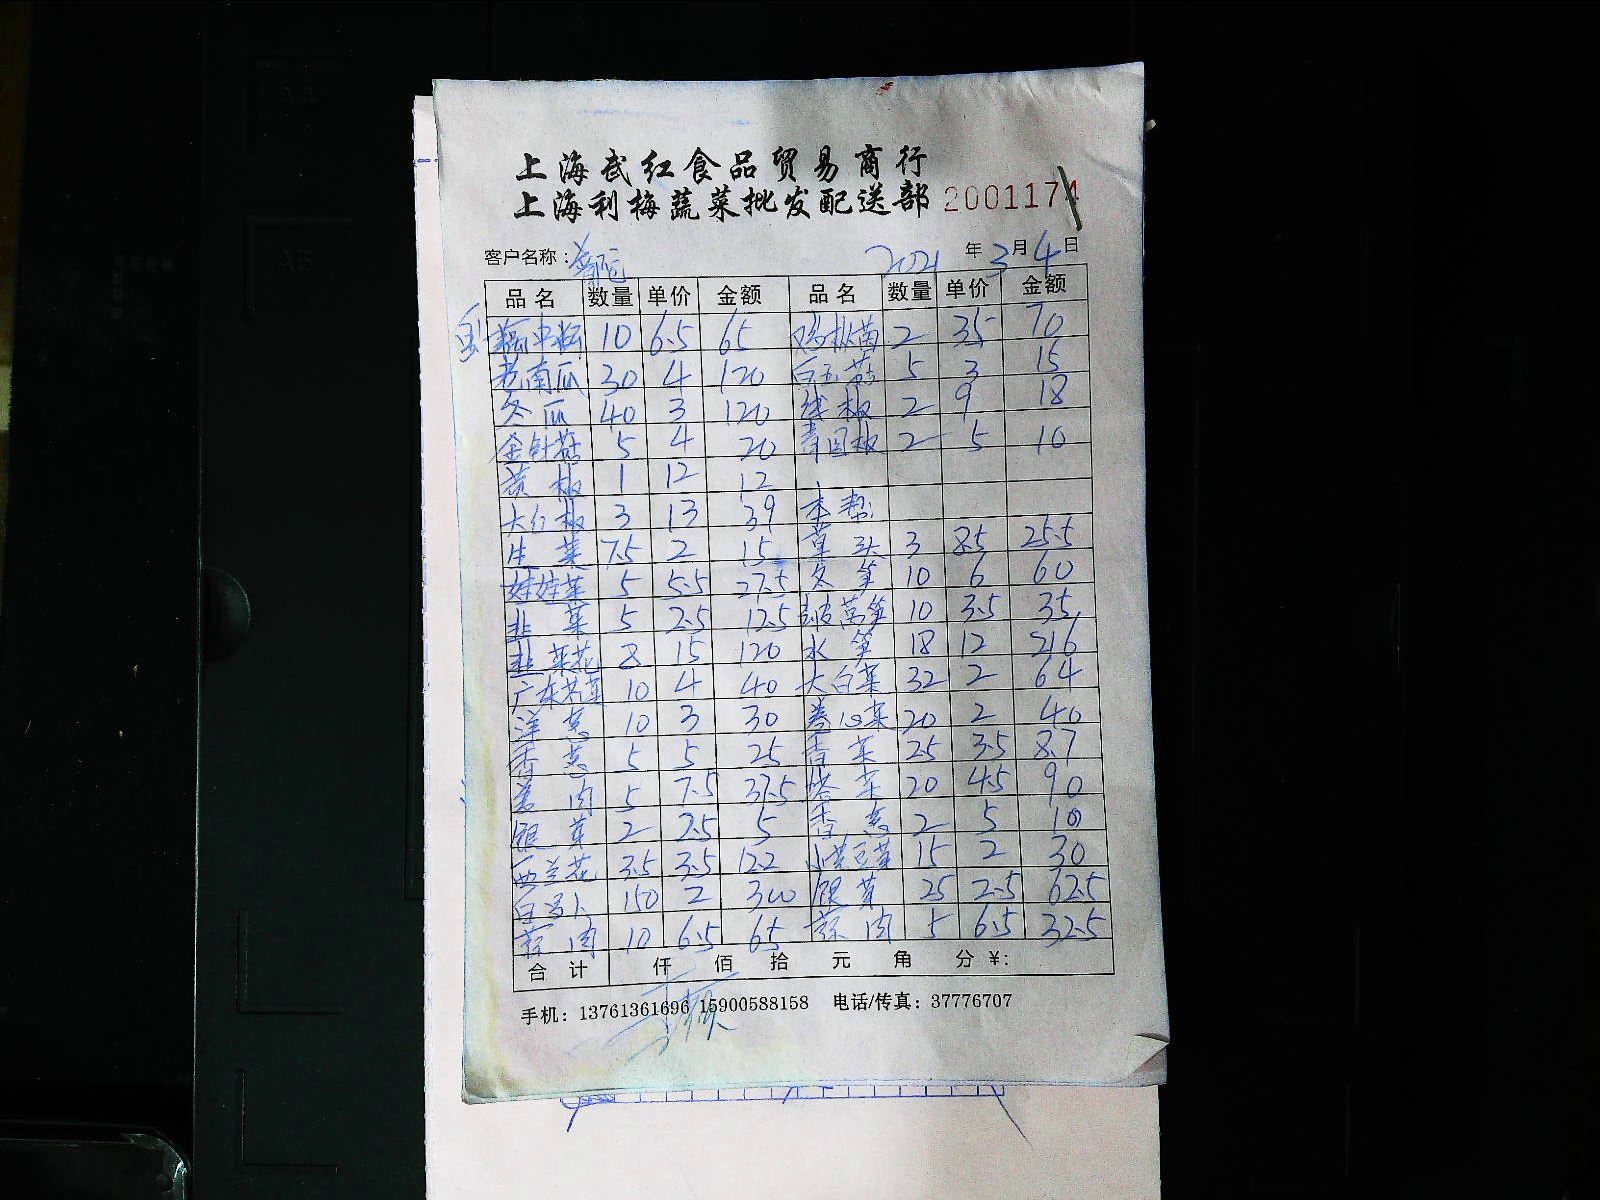 上海武红食品贸易商行
上海利梅蔬菜批发配送部 2001174
客户名称： 2021 年 3 月 4 日
品名 数量 单价 金额 品名 数量 单价 金额
10 6.5 65 鸡枞菌 2 35 70
老南瓜 30 4 120 白玉菇 5 3 15
冬瓜 40 3 120 线椒 2 9 18
金针菇 5 4 20 青园椒 2 5 10
黄椒 1 12 12
大红椒 3 13 39 本帮
生菜 7.5 2 15 草头 3 8.5 25.5
娃娃菜 5 5.5 27.5 冬笋 10 6 60
韭菜 5 2.5 12.5 莴笋 10 3.5 35
韭菜花 8 15 120 水笋 18 12 216
广东芥菜 10 4 40 大白菜 32 2 64
洋葱 10 3 30 卷心菜 20 2 40
香葱 5 5 25 青菜 25 3.5 87
姜肉 5 7.5 37.5 塔菜 20 4.5 90
银芽 2 2.5 5 香葱 2 5 10
西兰花 3.5 3.5 12.2 小黄豆芽 15 2 30
白萝卜 150 2 300 银芽 25 2.5 62.5
蒜肉 10 6.5 65 蒜肉 5 6.5 32.5
合计 仟 佰 拾 元 角 分 ¥:
手机：13761361696 15900588158 电话/传真：37776707